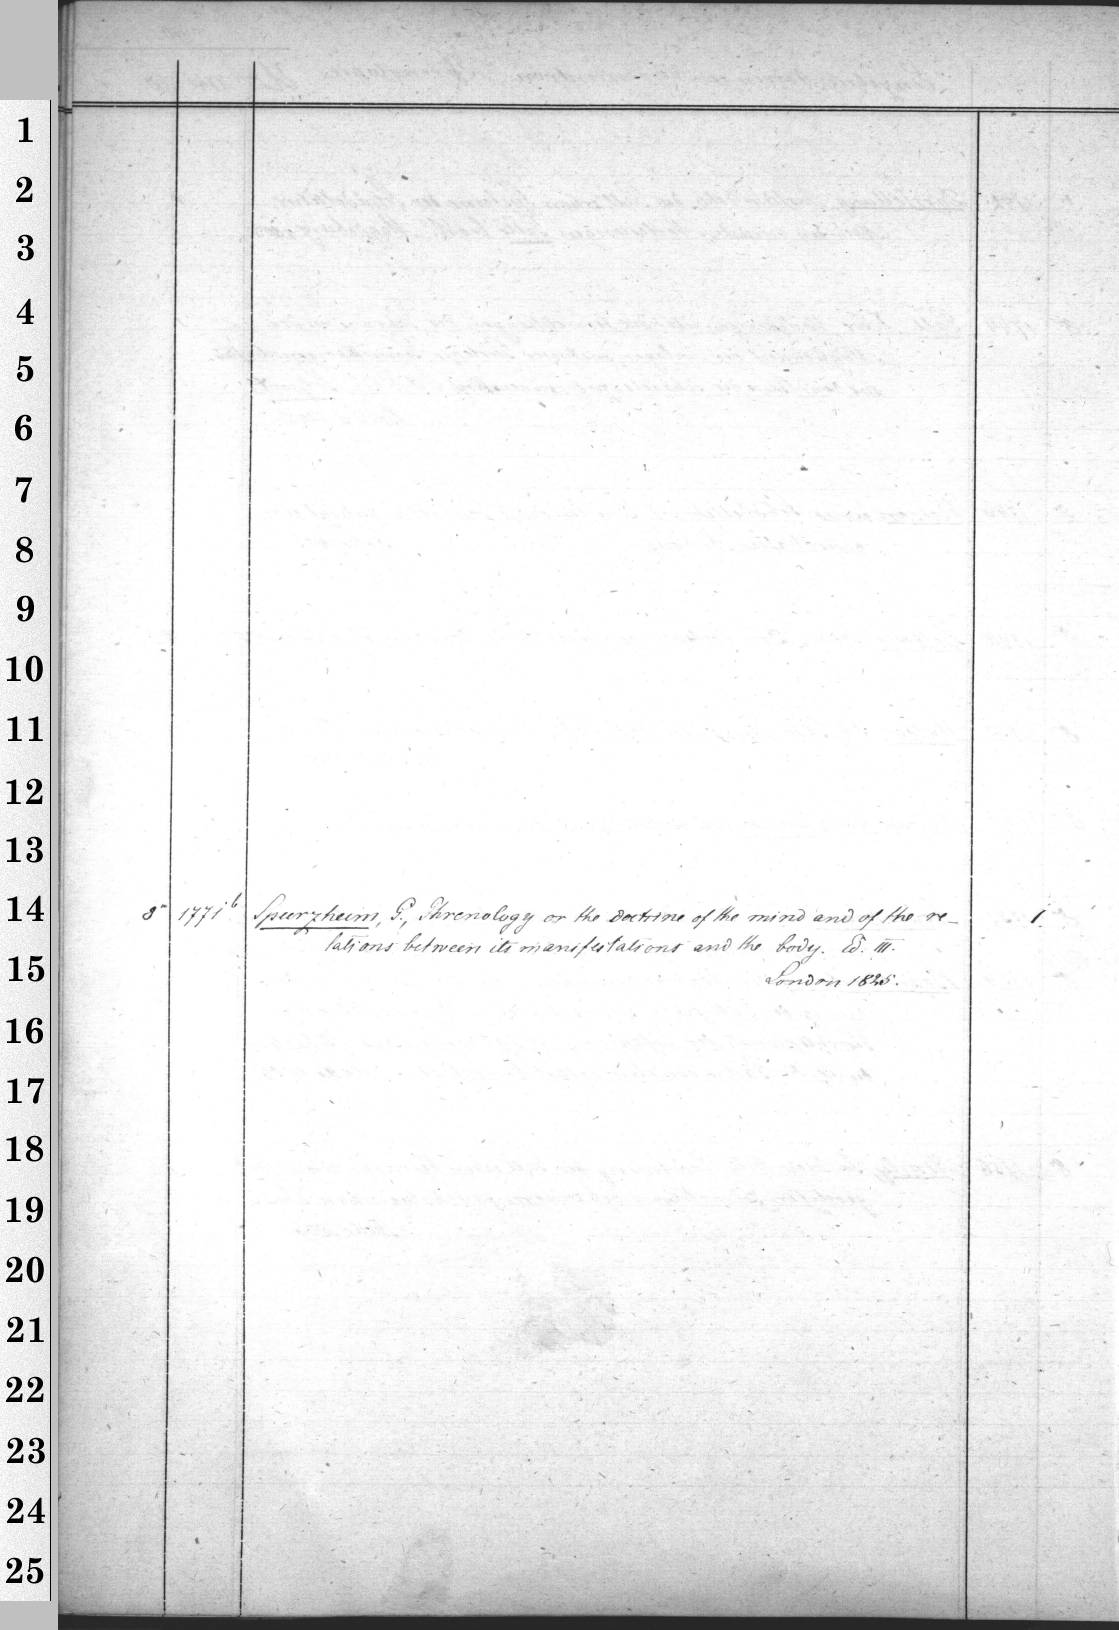 1
2
3
4
5
6
7
8
9
10
11
12
13
14
15
16
17
18
19
20
21
22
23
24
25
8° 1771b Spurzheim, G., Phrenology or the doctrine of the mind and of the re- 1.
lations between its manifestations and the body. Ed. III.
London 1825.